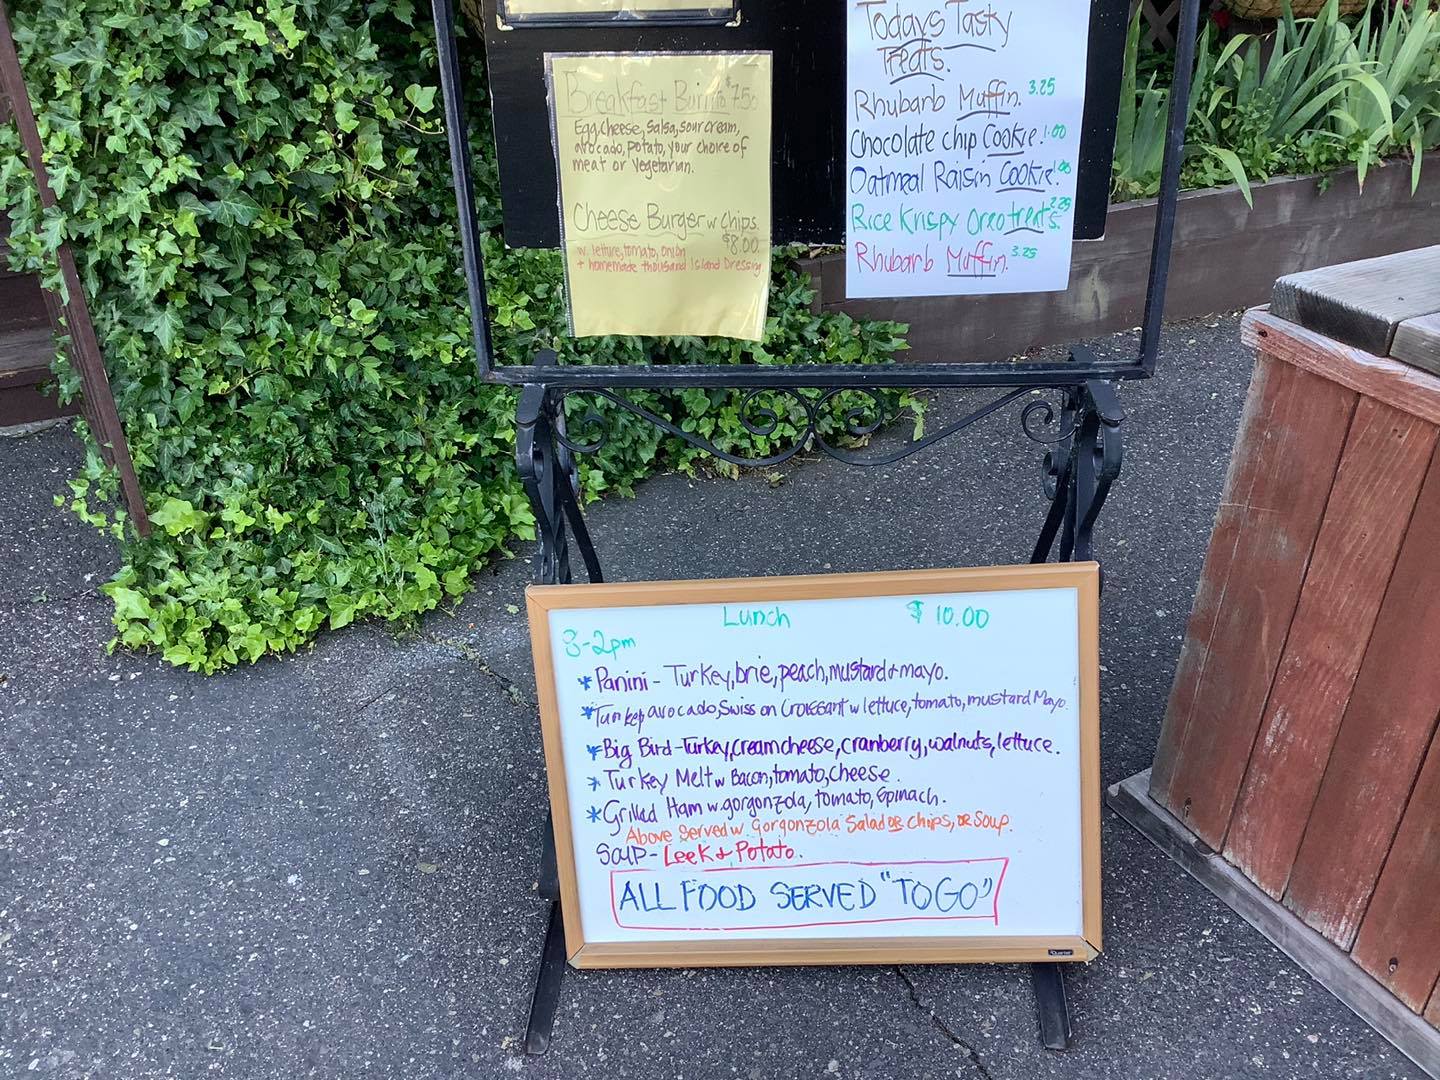 Breakfast Burrito $7.50
Egg, cheese, salsa, sour cream,
avocado, potato, your choice of
meat or vegetarian.
Cheese Burger w chips.
$8.00
w. lettuce, tomato, onion
+ homemade thousand Island Dressing.
Todays Tasty
Treats.
Rhubarb Muffin. 3.25
Chocolate chip Cookie! 1.00
Oatmeal Raisin Cookie! 1.00
Rice Krispy Oreo treats. 2.25
Rhubarb Muffin. 3.25
Lunch $ 10.00
8-2pm
* Panini - Turkey, brie, peach, mustard + mayo.
* Turkey avocado, Swiss on Croissant w lettuce, tomato, mustard Mayo.
* Big Bird - Turkey, cream cheese, cranberry, walnuts, lettuce.
* Turkey Melt w Bacon, tomato, cheese.
* Grilled Ham w gorgonzola, tomato, Spinach.
Above served w Gorgonzola Salad OR chips, OR Soup.
SOUP - Leek + Potato.
ALL FOOD SERVED "TO GO"
Quartet